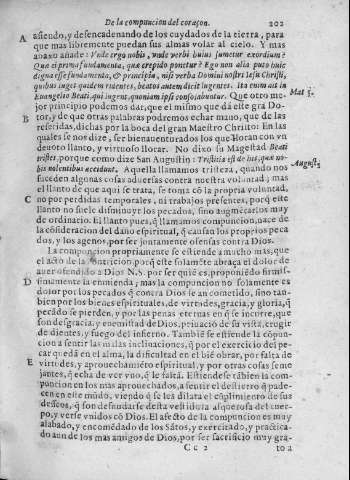 De la compuncion del coraçon. 202
A asiendo, y desencadenando de los cuydados de la tierra, para
que mas libremente puedan sus almas volar al cielo. Y mas
abaxo añade: Vnde ergo nobis, vnde verbi huius sumetur exordium?
Quae ei prima fundamenta, quae crepido ponetur? Ego non alia puto huic
digna esse fundamenta, & principia, nisi verba Domini nostri Iesu Christi,
quibus iuget quidem ridentes, beatos autem dicit lugentes. Ita enim ait in
Euangelio Beati, qui lugent, quoniam ipsi consolabuntur. Que otro me-
Mat 5.
jor principio podemos dar, que el mismo que dà este gra Do-
B tor, y de que otras palabras podremos echar mano, que de las
referidas, dichas por la boca del gran Maestro Christo: En las
quales se nos dize, ser bienauenturados los que lloran con vn
deuoto llanto, y virtuoso llorar. No dixo su Magestad Beati
tristes, porque como dize San Augustin: Tristitia est de his, quae no-
August;
bis nolentibus accidunt. Aquella llamamos tristeza, quando nos
suceden algunas cosas aduersas contra nuestra voluntad; mas
el llanto de que aqui se trata, se toma cō la propria voluntad,
C no por perdidas temporales, ni trabajos presentes, porq̃ este
llanto no suele disminuyr los pecados, sino augmētarlos muy
de ordinario. El llanto pues, q̃ llamamos compuncion, nace de
la cōsideracion del daño espiritual, q̃ causan los proprios peca
dos, y los agenos, por ser juntamente ofensas contra Dios.
La compuncion propriamente se estiende a mucho mas, que
el acto de la contricion, porq̃ este solamēte abraça el dolor de
auer ofendido a Dios N.S. por ser quiē es, proponiēdo firmis-
D simamente la enmienda; mas la compuncion no solamente es
dolor por los pecados q̃ contra Dios se an cometido, sino tan-
bien por los bienes espirituales, de virtudes, gracia, y gloria, q̃
pecādo se pierden, y por las penas eternas en q̃ se incurre, que
son desgracia, y enemistad de Dios, priuaciō de su vista, cruxir
de dientes, y fuego del infierno. Tambiē se estiende la cōpun-
cion a sentir las malas inclinaciones, q̃ por el exercicio del pe-
car quedā en el alma, la dificultad en el biē obrar, por falta de
E virtudes, y aprouechamiēto espiritual, y por otras cosas seme
jantes, q̃ echa de ver vno, q̃ le faltā. Estiendese tābien la com-
puncion en los mas aprouechados, a sentir el destierro q̃ pade-
cen en este mūdo, viendo q̃ se les dilata el cūplimiento de sus
desseos, q̃ son desnudarse desta vestidura asquerosa del cuer-
po, y verse vnidos cō Dios. El afecto de la compuncion es muy
alabado, y encomēdado de los Sātos, y exercitado, y practica-
do aun de los mas amigos de Dios, por ser sacrificio muy gra-
Cc 2 to a